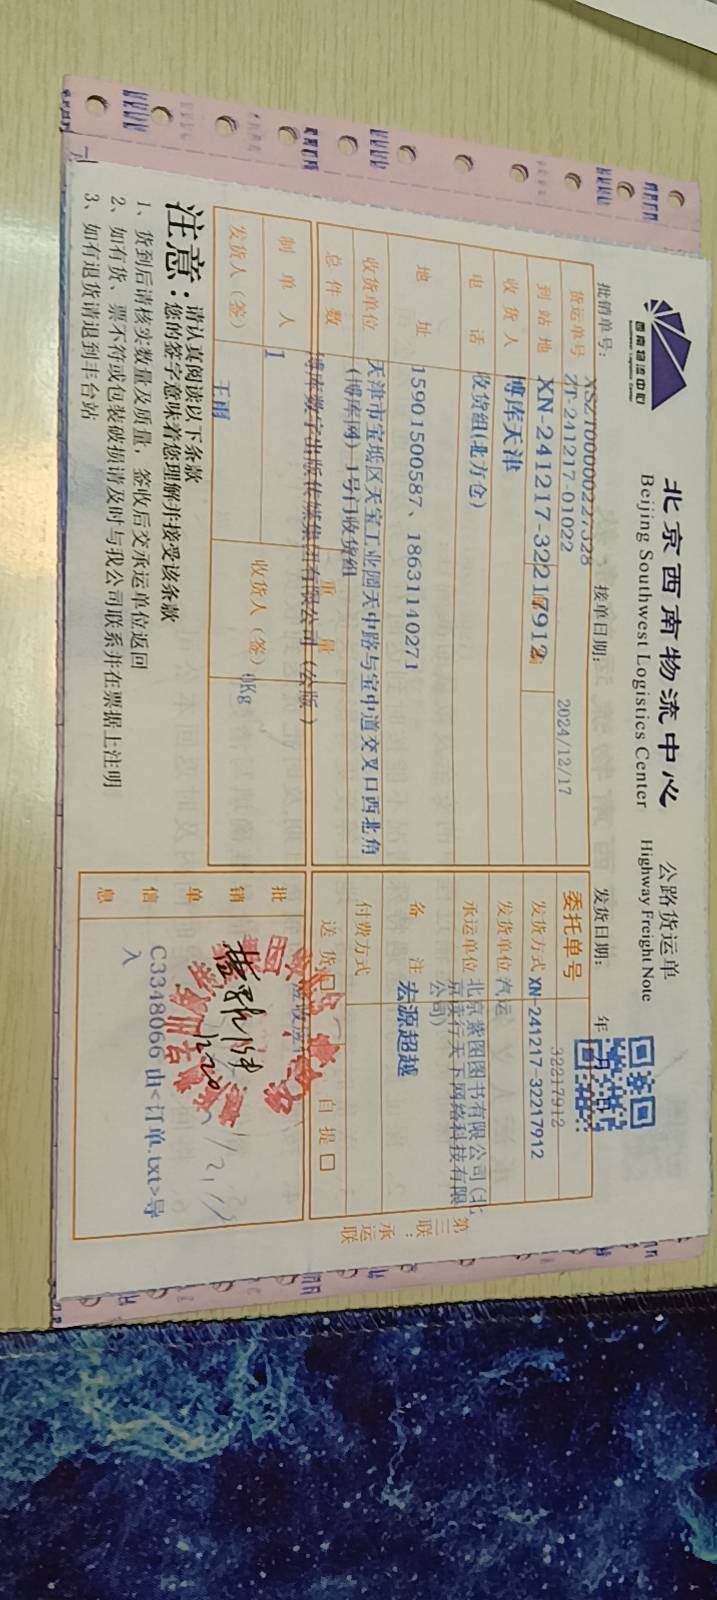 西南物流中心
Southwest Logistics Center
北京西南物流中心
Beijing Southwest Logistics Center
公路货运单
Highway Freight Note
批销单号: XSZ100000227328
接单日期:
发货日期: 年 月 日
货运单号 ZT-241217-01022
2024/12/17
委托单号
32217912
到站地 XN-241217-32217912
发货方式 XN-241217-32217912
收货人 博库天津
发货单位 汽运
电话 收货组(北方仓)
承运单位 北京紫图图书有限公司(北
京读行天下网络科技有限
公司)
地址 15901500587、18631140271
备注 宏源超越
收货单位 天津市宝坻区天宝工业园天中路与宝中道交叉口西北角
(博库网)1号门收货组
付费方式
总件数 博库数字出版传媒集团有限公司(公版)
重量
送货□
自提□
制单人 1
收货人(签)
0Kg
发货人(签) 王雨
批销单信息
C3348066 由<订单.txt>导
入
第三联:承运联
注意:
请认真阅读以下条款
您的签字意味着您理解并接受该条款
1、货到后请核实数量及质量,签收后交承运单位返回
2、如有货、票不符或包装破损请及时与我公司联系并在票据上注明
3、如有退货请退到丰台站